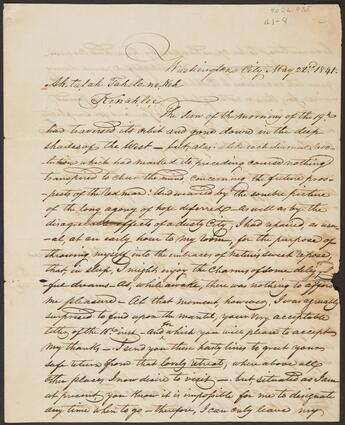 4026.435
Washington City, May 22d 1841.
Ak talah Tah
Kinahlee
The Sun of the morning of the 19th
had traversed its orbit and gone down in the deep
shades of the West — but, alas! like each diurnal revo-
lution which had marked its preceding course nothing
transpired to cheer the mind concerning the future pros-
pects of the red man! And wearied by the sombre picture
of the long agony of hope deferred — as well as by the
disagreeable effects of a dusty City, I had repaired, as usu-
al, at an early hour to my room, for the purpose of
throwing myself into the embraces of natures sweet repose,
that, in sleep, I might enjoy the Charms of some delight-
ful dreams — As, while awake, there was nothing to afford
me pleasure — At that moment, however, I was agreeably
surprised to find upon the mantel, your very acceptable
letter, of the 18th inst. And for which you will please to accept
my thanks — I send you these hasty lines to greet your
safe return from that lovely retreat, where above all
other places, I now desire to visit — but situated as I am
at present, you know it is impossible for me to designate
any time when to go — therefore, I can only leave my